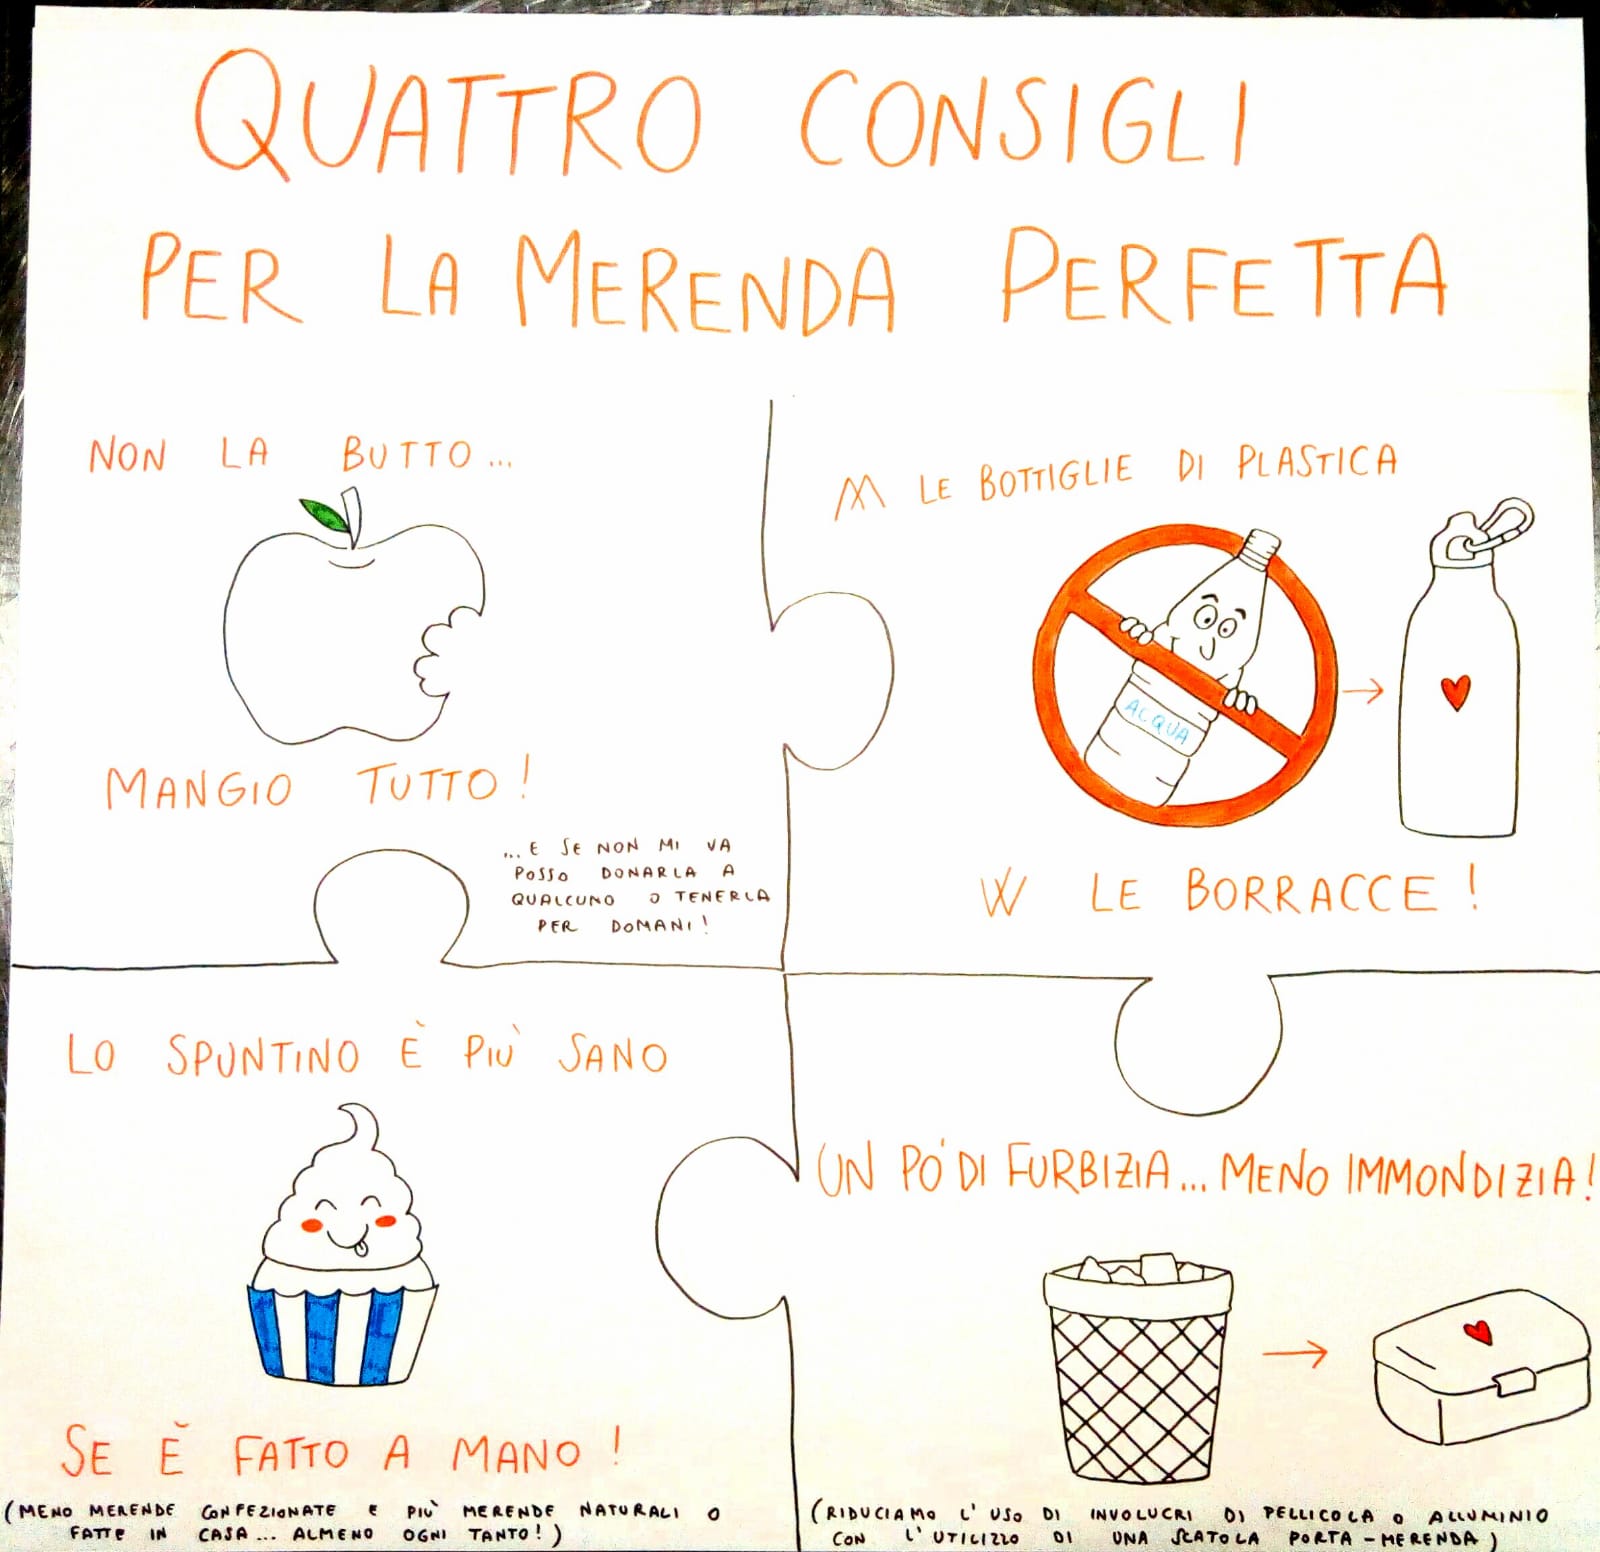 QUATTRO CONSIGLI
PER LA MERENDA PERFETTA
NON LA BUTTO...
MANGIO TUTTO!
... E SE NON MI VA
POSSO DONARLA A
QUALCUNO O TENERLA
PER DOMANI!
M LE BOTTIGLIE DI PLASTICA
ACQUA
W LE BORRACCE!
LO SPUNTINO È PIÙ SANO
SE È FATTO A MANO!
(MENO MERENDE CONFEZIONATE E PIÙ MERENDE NATURALI O
FATTE IN CASA... ALMENO OGNI TANTO!)
UN PO' DI FURBIZIA... MENO IMMONDIZIA!
(RIDUCIAMO L'USO DI INVOLUCRI DI PELLICOLA O ALLUMINIO
CON L'UTILIZZO DI UNA SCATOLA PORTA-MERENDA)